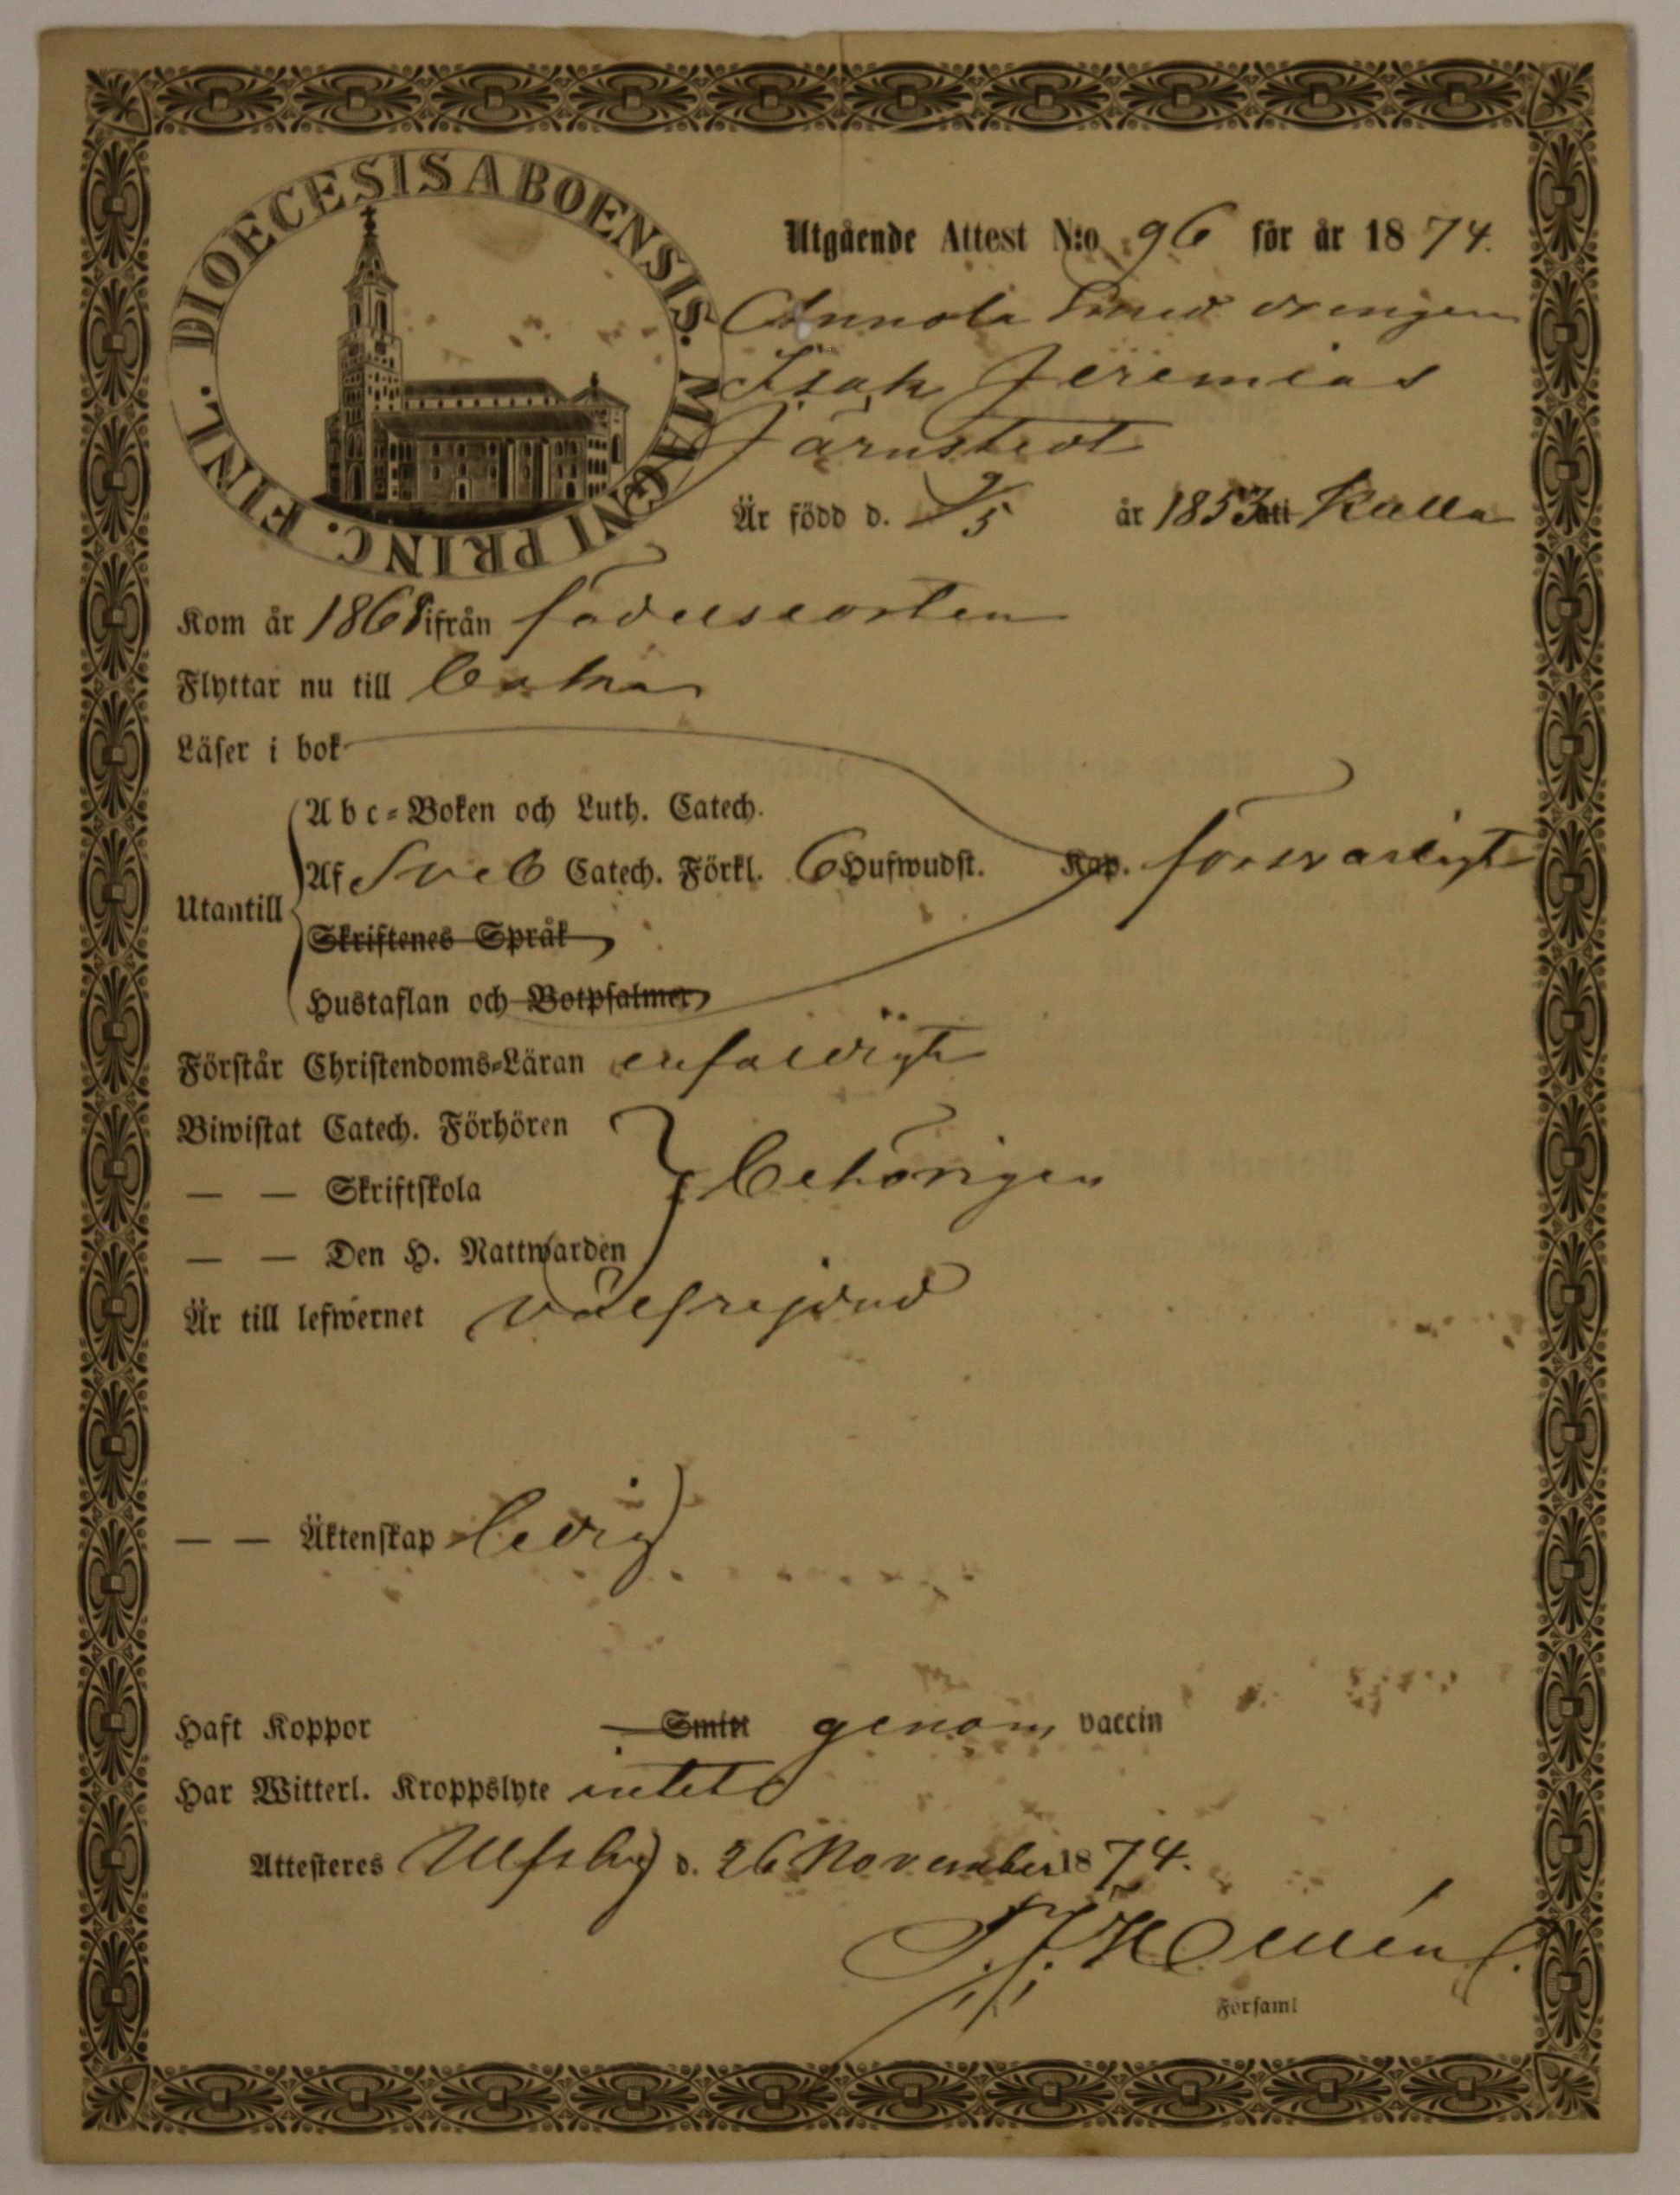 DIOECESIS ABOENSIS. MAGNI PRINC. FINL.
Utgående Attest N:o 96 för år 1874.
Annola Smed drengen
Isak Jeremias
Järnstedt
Är född d. 9/5 år 1853 uti Kulla
Kom år 1868 ifrån födelseorten
Flyttar nu till
Läser i bok
Abc-Boken och Luth. Catech.
Utantill
Af Sveb Catech. Förkl. 6 Hufwudst. Kap. försvarligt
Skriftenes Språk
Hustaflan och Botpsalmer
Förstår Christendoms-Läran enfaldigt
Biwistat Catech. Förhören
— — Skriftskola behörigen
— — Den H. Nattwarden
Är till lefwernet välfrejdad
— — Äktenskap ledig
Haft Koppor Smitt genom vaccin
Har Witterl. Kroppslyte intet
Attesteres Ulfsby d. 26 November 1874.
Församl